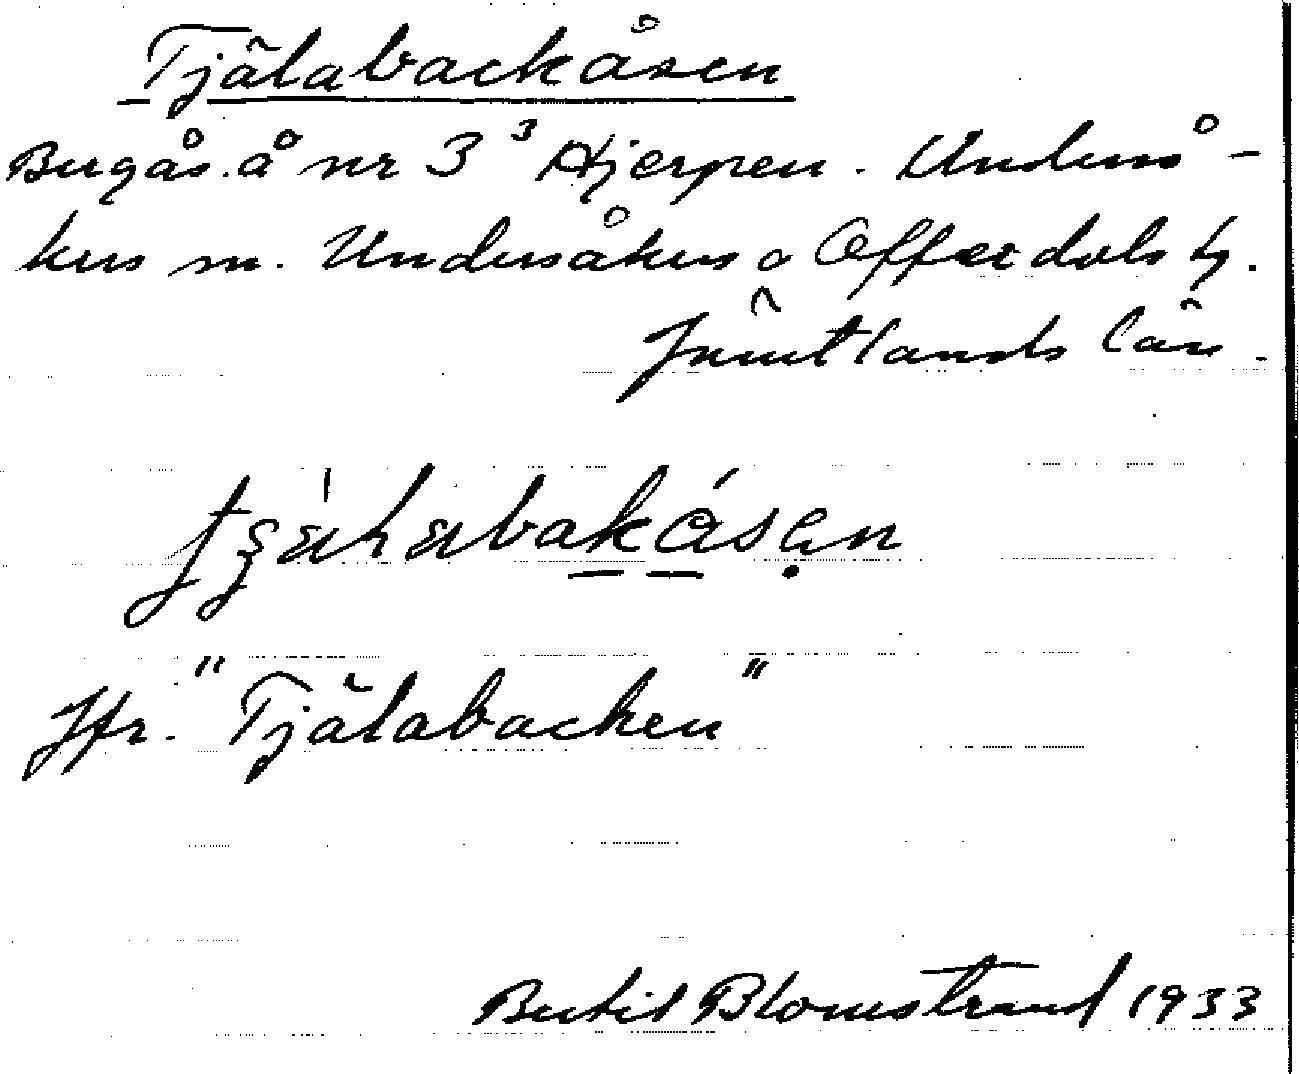 Tjälabackåsen
Bergås. å nr 3³ Hjerpen. Underså-
kers sn. Undersåkers o Offerdals tg.
Jämtlands län.
Jfr. "Tjälabacken"
Bertil Blomstrand 1933